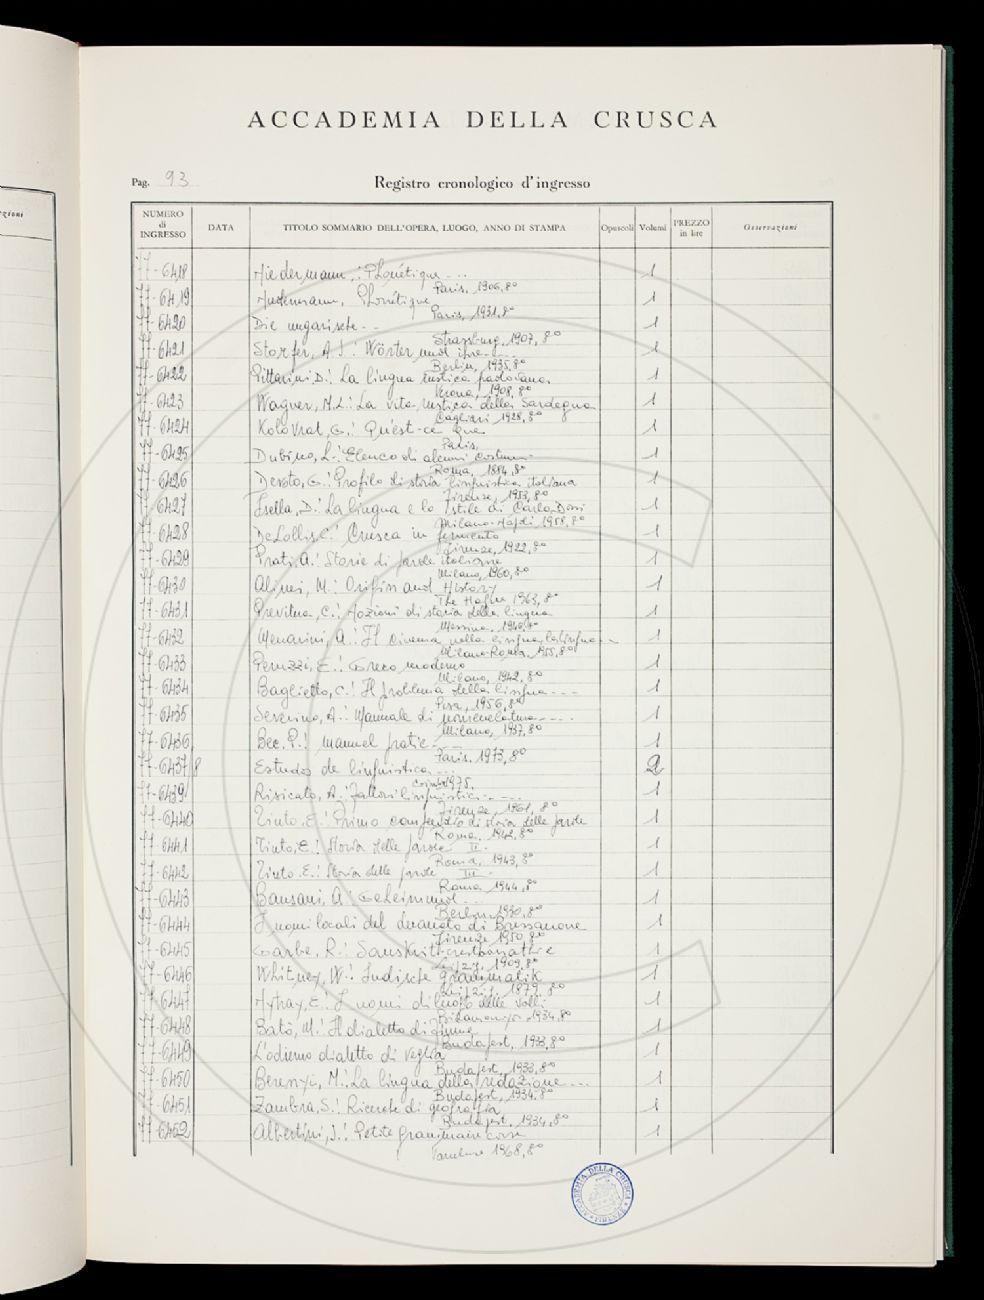 ACCADEMIA DELLA CRUSCA
Pag. 93 Registro cronologico d'ingresso
NUMERO di INGRESSO DATA TITOLO SOMMARIO DELL'OPERA, LUOGO, ANNO DI STAMPA Opuscoli Volumi PREZZO in lire Osservazioni
77-6418 : Phonétique ... 1
Paris, 1906, 8°
77-6419 Phonétique 1
Paris, 1931, 8°
77-6420 Die ungarische - - 1
Strassburg, 1907, 8°
77-6421 Storfer, A.J.: Wörter und ihre 1
Berlin, 1935, 8°
77-6422 Pittarini D.: La lingua rustica padovana 1
Verona, 1908, 8°
77-6423 Wagner, M.L.: La vita rustica della Sardegna 1
Cagliari 1928, 8°
77-6424 Kolovrat, G.: Qu'est-ce que 1
Paris,
77-6425 Dubino, L.: Elenco di alcuni costumi 1
Roma, 1884, 8°
77-6426 Devoto, G.: Profilo di storia linguistica italiana 1
Firenze, 1953, 8°
77-6427 Isella, D.: La lingua e lo stile di Carlo Dossi 1
Milano-Napoli 1958, 8°
77-6428 De Lollis, C.: Crusca in fermento 1
Firenze, 1922, 8°
77-6429 Prati, A.: Storie di parole italiane 1
Milano, 1960, 8°
77-6430 Alinei, M.: Origin and History 1
The Hague 1963, 8°
77-6431 Previtera, C.: Nozioni di storia della lingua 1
Messina, 1940, 8°
77-6432 Menarini, A.: Il cinema nella lingua, la lingua - ~ 1
Milano-Roma, 1955, 8°
77-6433 Peruzzi, E.: Greco moderno 1
Milano, 1942, 8°
77-6434 Baglietto, C.: Il problema della lingua --- 1
Pisa, 1956, 8°
77-6435 Severino, A.: Manuale di nomenclatura ---- 1
Milano, 1937, 8°
77-6436 Bec, P.: manuel pratic- 1
Paris, 1973, 8°
77-6437/8 Estudos de linguistica ... 2
Coimbra 1975,
77-6439 Risicato, A.: Fattori linguistici - - - 1
Firenze, 1961, 8°
77-6440 Tinto. E.: Primo compendio di storia delle parole 1
Roma, 1942, 8°
77-6441 Tinto, E.: Storia delle parole II - 1
Roma, 1943, 8°
77-6442 Tinto. E.: Storia delle parole III - 1
Roma 1944, 8°
77-6443 Bausani, A.: Geheim und ... 1
Berlin, 1970, 8°
77-6444 I nomi locali del decanato di Bressanone 1
Firenze 1950, 8°
77-6445 Garbe, R.: Sanskrit-chrestomathie 1
Leipzig, 1909, 8°
77-6446 Whitney, W.: Indische Grammatik 1
Leipzig, 1879, 8°
77-6447 I nomi di luogo delle valli 1
1934, 8°
77-6448 Batò, M.: Il dialetto di Fiume 1
Budapest, 1933, 8°
77-6449 L'odierno dialetto di Veglia 1
Budapest, 1933, 8°
77-6450 Berenyi, M.: La lingua della redazione ... 1
Budapest, 1934, 8°
77-6451 Zambra, S.: Ricerche di geografia 1
Budapest, 1934, 8°
77-6452 Albertini, J.: Petite grammaire corse 1
1968, 8°
ACCADEMIA DELLA CRUSCA
FIRENZE